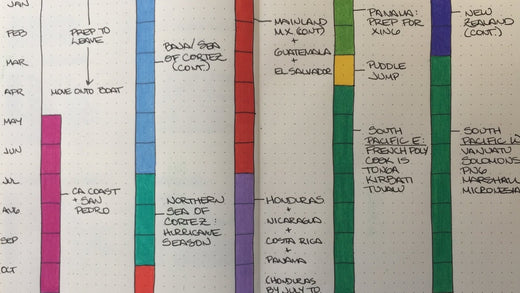 JAN
FEB
MAR
APR
MAY
JUN
JUL
AUG
SEP
OCT
PREP TO
LEAVE
MOVE ONTO BOAT
CA COAST
+ SAN
PEDRO
BAJA/SEA
OF CORTEZ
(CONT.)
NORTHERN
SEA OF
CORTEZ:
HURRICANE
SEASON
MAINLAND
MX (CONT)
+
GUATEMALA
+
EL SALVADOR
HONDURAS
+
NICARAGUA
+
COSTA RICA
+
PANAMA
(HONDURAS
BY JULY TO
PANAMA:
PREP FOR
XING
PUDDLE
JUMP
SOUTH
PACIFIC E:
FRENCH POLY
COOK IS
TONGA
KIRIBATI
TUVALU
NEW
ZEALAND
(CONT.)
SOUTH
PACIFIC W
VANUATU
SOLOMONS
PNG
MARSHALL
MICRONESIA